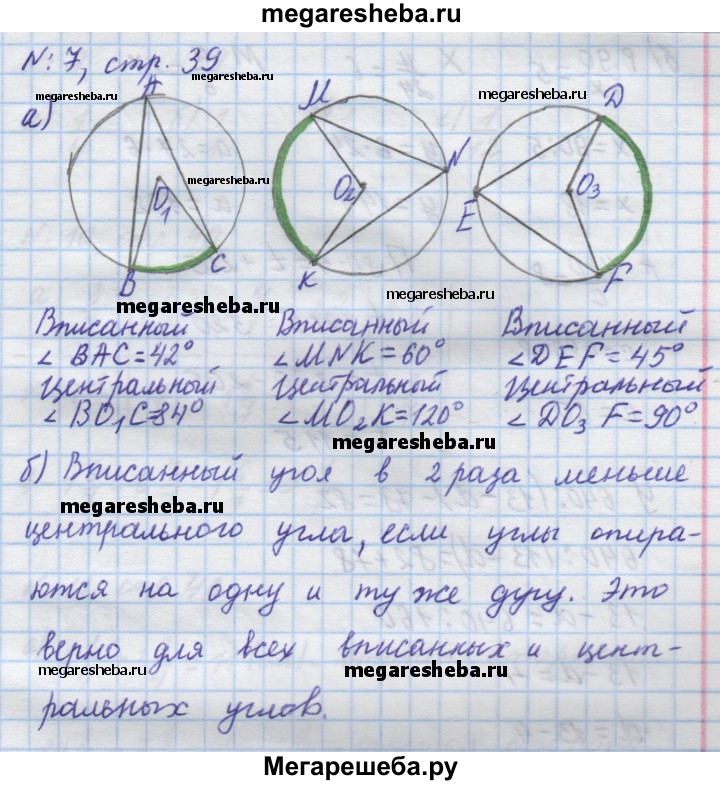 megaresheba.ru
№ 7, стр. 39
megaresheba.ru
megaresheba.ru
а)
A
B
C
O1
megaresheba.ru
M
N
K
O2
megaresheba.ru
D
E
F
O3
megaresheba.ru
megaresheba.ru
Вписанный Вписанный Вписанный
∠ BAC = 42° ∠ MNK = 60° ∠ DEF = 45°
Центральный Центральный Центральный
∠ BO1C = 84° ∠ MO2K = 120° ∠ DO3F = 90°
megaresheba.ru
б) Вписанный угол в 2 раза меньше
megaresheba.ru
центрального угла, если углы опира-
ются на одну и ту же дугу. Это
верно для всех вписанных и цент-
megaresheba.ru megaresheba.ru
ральных углов.
Мегарешеба.ру